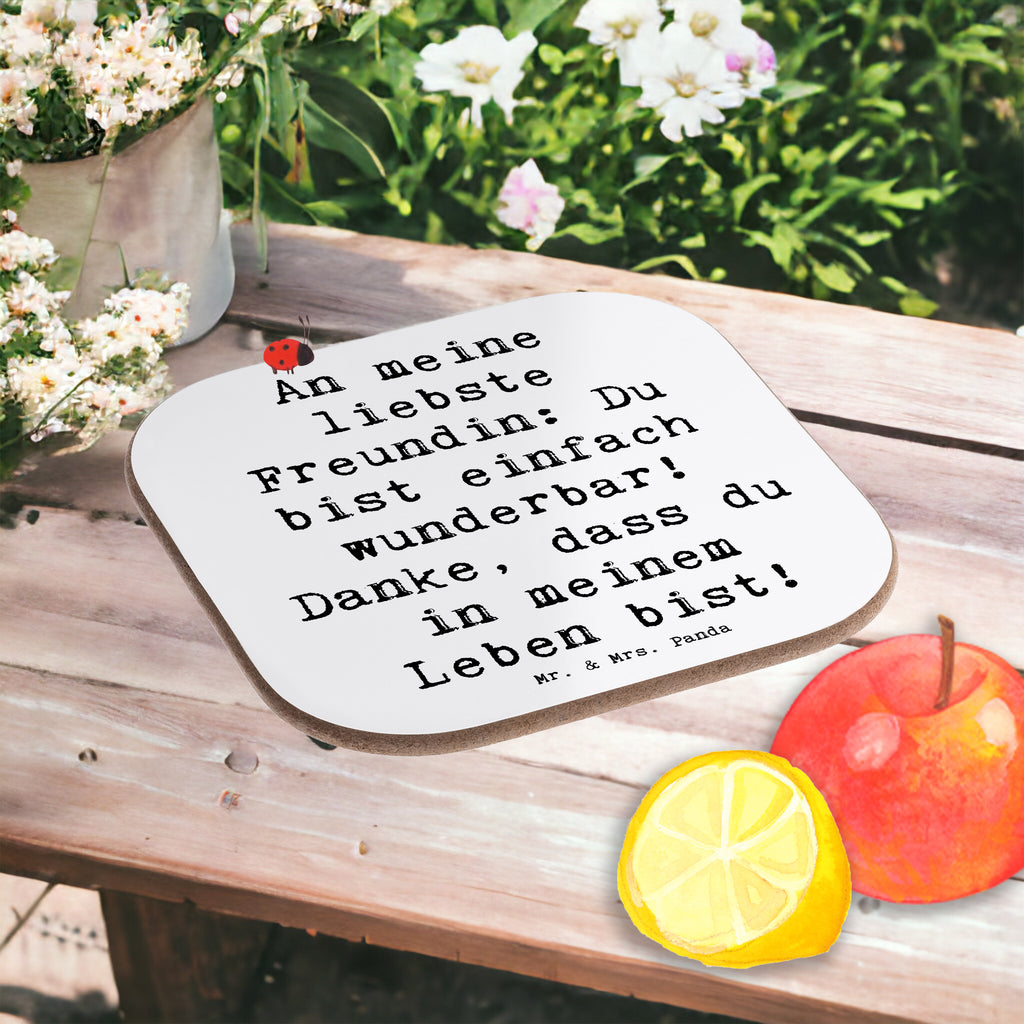 An meine
liebste
Freundin: Du
bist einfach
wunderbar!
Danke, dass du
in meinem
Leben bist!
Mr. & Mrs. Panda